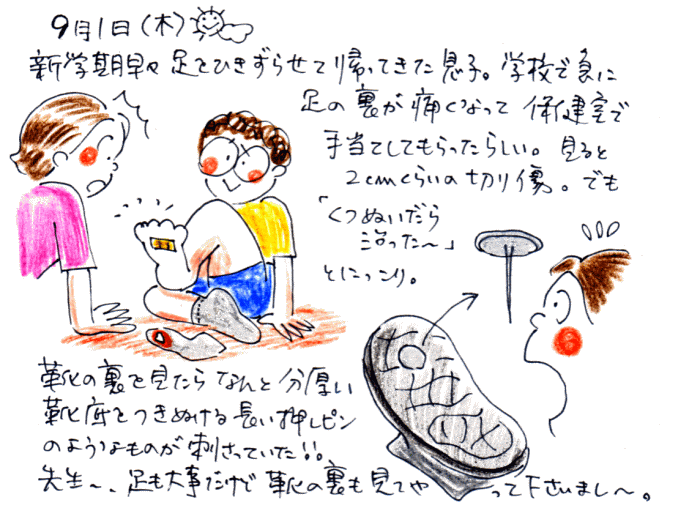 9月1日(木)
新学期早々足をひきずらせて帰ってきた息子。学校で急に
足の裏が痛くなって保健室で
手当てしてもらったらしい。見ると
2cmくらいの切り傷。でも
「くつぬいだら
治った〜」
とにっこり。
靴の裏を見たらなんと分厚い
靴底をつきぬける長い押しピン
のようなものが刺さっていた!!
先生〜、足も大事だけど靴の裏も見てやって下さいまし〜。